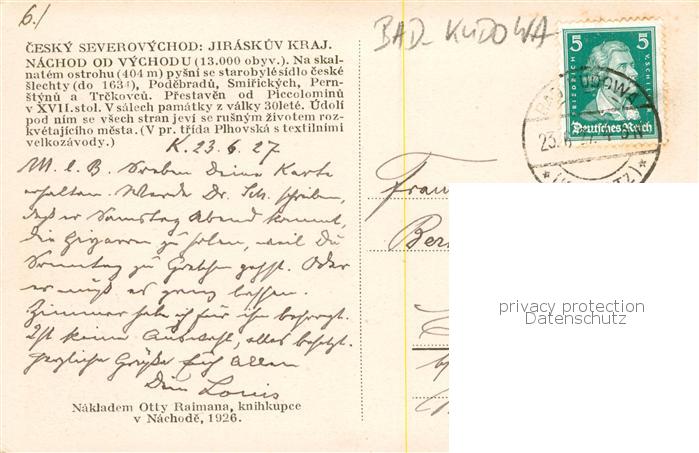 6./
BAD-KUDOWA
ČESKÝ SEVEROVÝCHOD: JIRÁSKŮV KRAJ.
NÁCHOD OD VÝCHODU (13.000 obyv.). Na skal-
natém ostrohu (404 m) pyšní se starobylé sídlo české
šlechty (do 1634), Poděbradů, Smiřických, Pern-
štýnů a Trčkovců. Přestavěn od Piccolominiů
v XVII. stol. V sálech památky z války 30leté. Údolí
pod ním se všech stran jeví se rušným životem roz-
kvétajícího města. (V pr. třída Plhovská s textilními
velkozávody.)
K. 23.6.27
M. l. B. Soeben Deine Karte
erhalten. Werde Dr. Sch. schreiben,
daß er Samstag Abend kommt,
die Zigarren zu holen, weil Du
Sonntag zu Gretchen gehst. Oder
er muß es ganz lassen.
Zimmer habe ich für ihn besorgt.
Ist keine Auswahl, alles besetzt.
Herzliche Grüße Euch Allen
Dein Louis
Nákladem Otty Raimana, knihkupce
v Náchodě, 1926.
5 5
FRIEDRICH V. SCHILLER
Deutsches Reich
BAD KUDOWA
23.6.27
Frau
Ber
privacy protection
Datenschutz